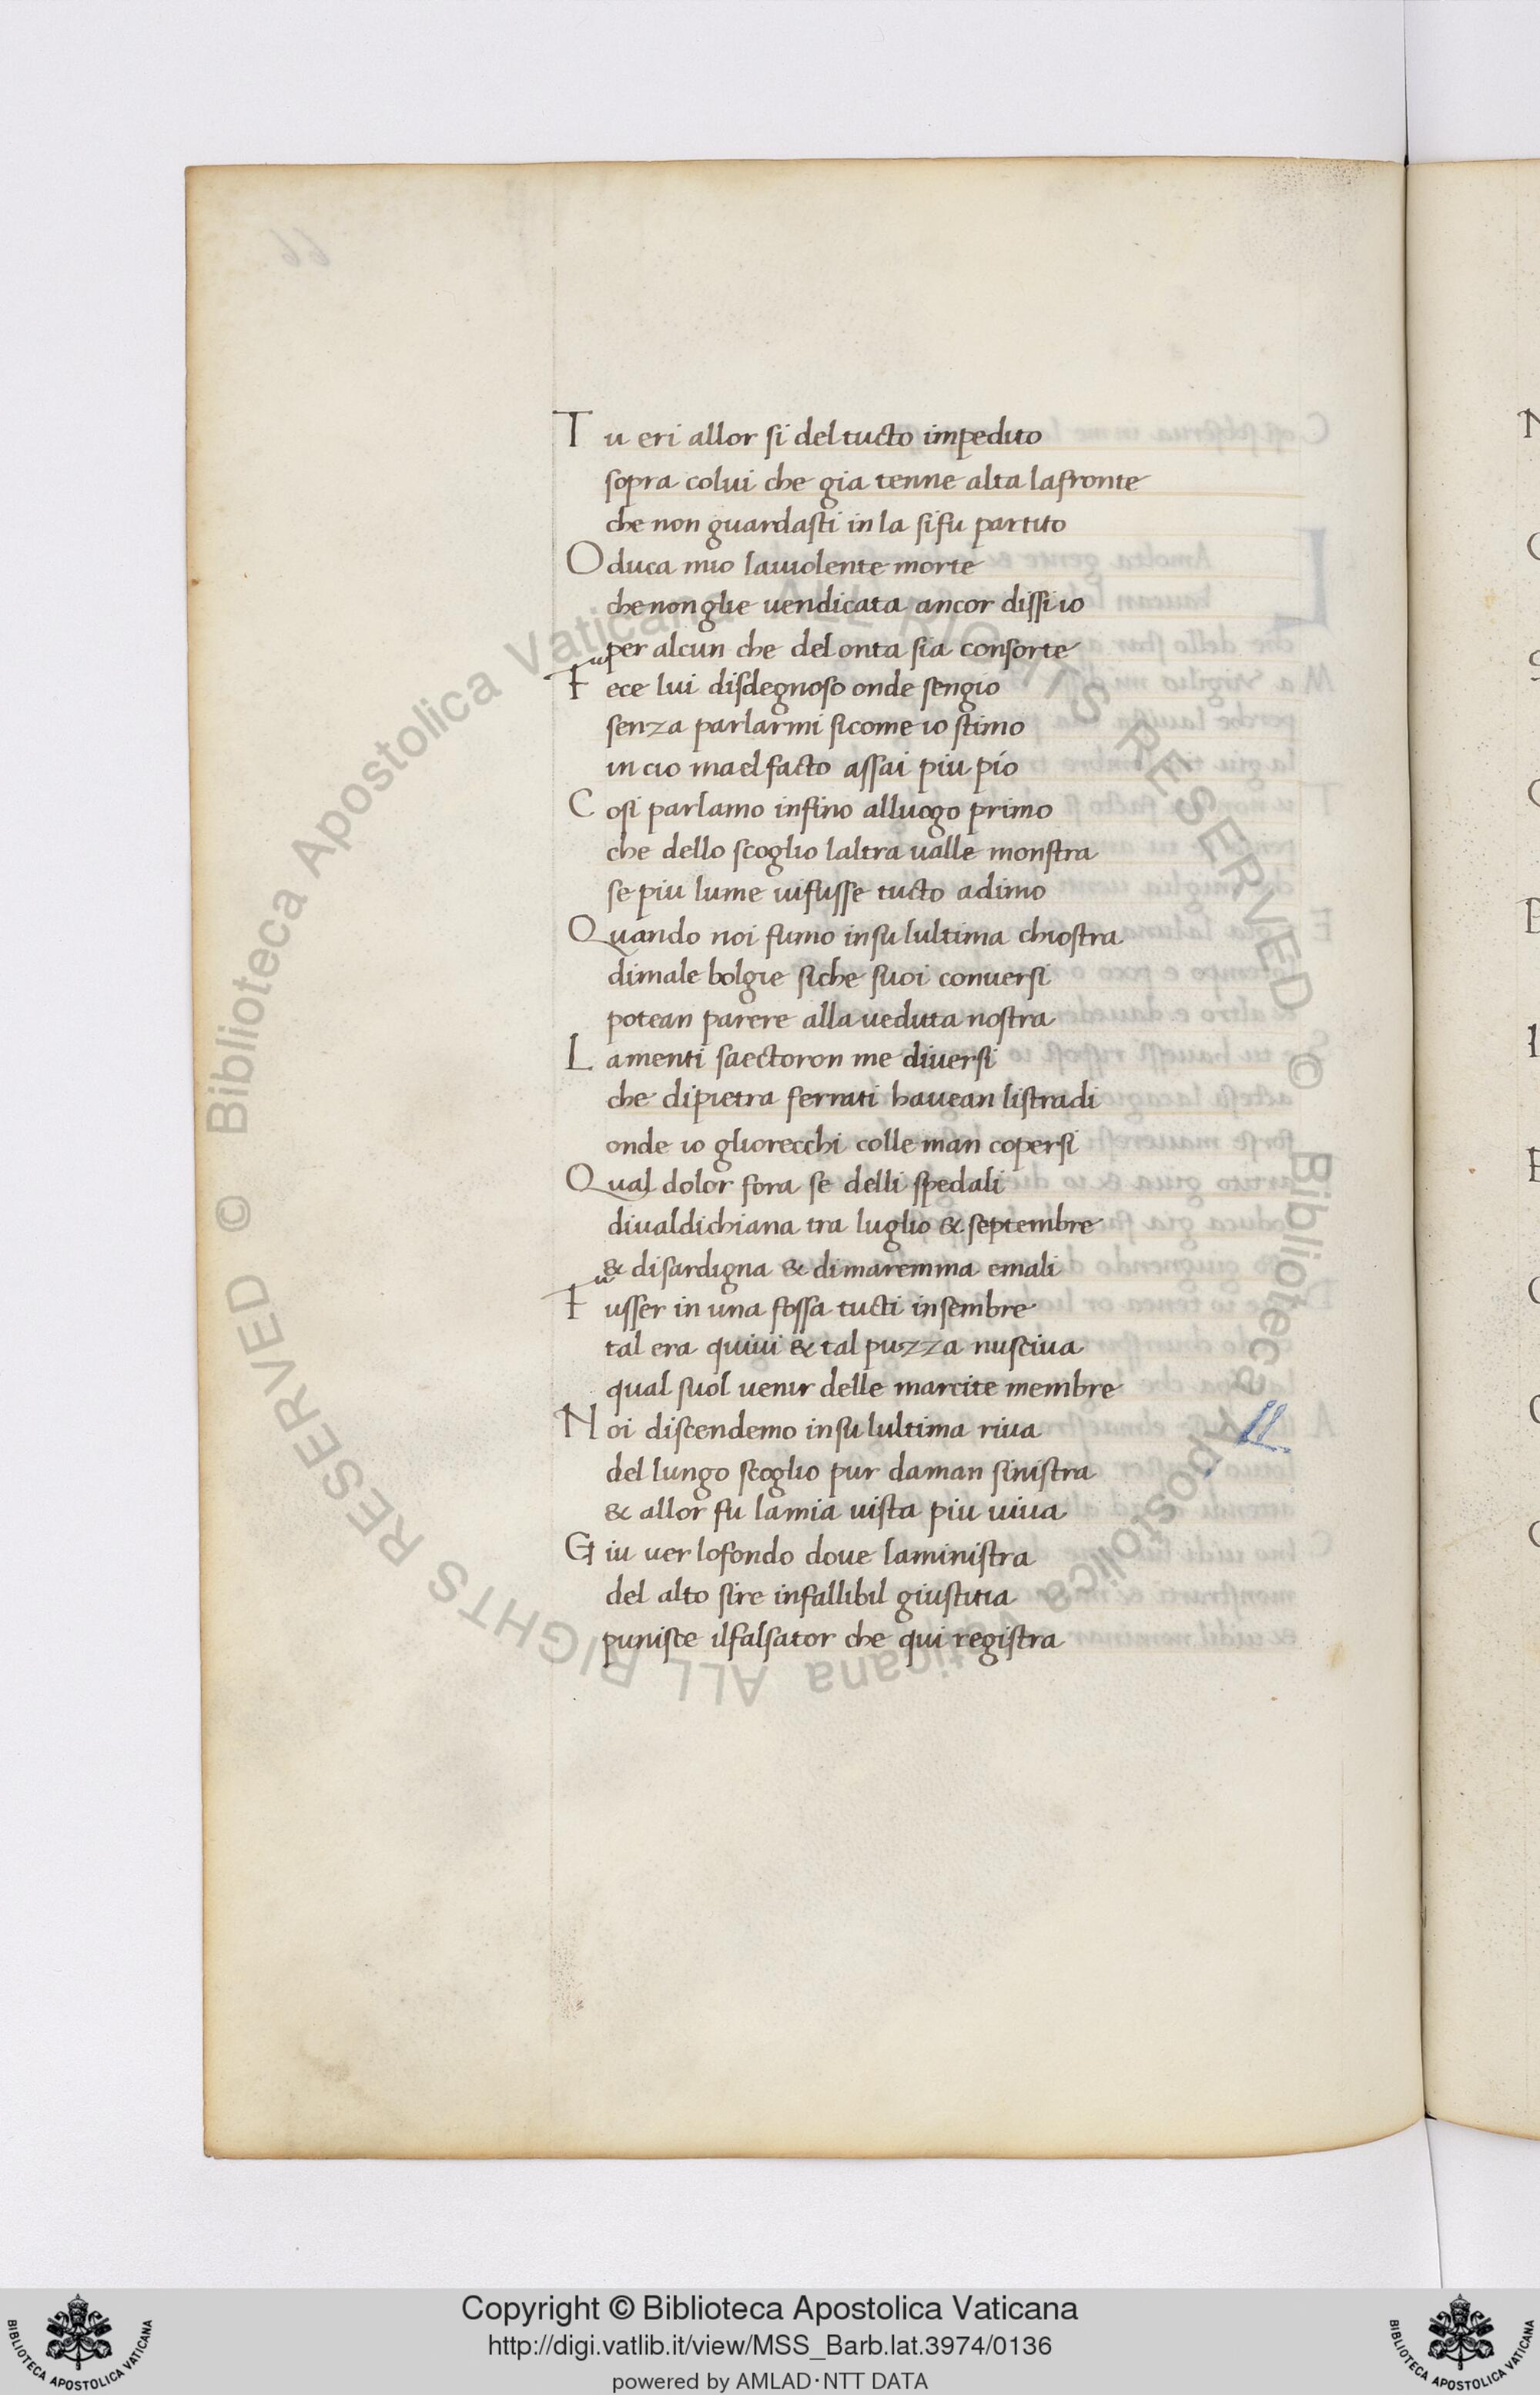 Tu eri allor si del tucto impedito
sopra colui che gia tenne alta lafronte
che non guardasti in la sifu partito
O duca mio lauiolente morte
chenonglie uendicata ancor dissi io
per alcun che delonta sia consorte
Fece lui disdegnoso onde sengio
senza parlarmi sicome io stimo
in cio mael facto assai piu pio
Cosi parlamo infino alluogo primo
che dello scoglio laltra ualle monstra
se piu lume uifusse tucto adimo
Quando noi fumo insu lultima chiostra
dimale bolgie siche suoi conuersi
potean parere alla ueduta nostra
Lamenti saectoron me diuersi
che dipietra ferrati hauean listradi
onde io gliorecchi colle man copersi
Qual dolor fora se delli spedali
diualdichiana tra luglio & septembre
& disardigna & dimaremma emali
Fusser in una fossa tucti insembre
tal era quiui & tal puzza nusciua
qual suol uenir delle marcite membre
Noi discendemo insu lultima riua
del lungo scoglio pur daman sinistra
& allor fu lamia uista piu uiua
Giu uer lofondo doue laministra
del alto sire infallibil giustitia
punisce ilfalsator che qui registra
© Biblioteca Apostolica Vaticana ALL RIGHTS RESERVED © Biblioteca Apostolica Vaticana ALL RIGHTS RESERVED
Copyright © Biblioteca Apostolica Vaticana
http://digi.vatlib.it/view/MSS_Barb.lat.3974/0136
powered by AMLAD·NTT DATA
BIBLIOTECA APOSTOLICA VATICANA
BIBLIOTECA APOSTOLICA VATICANA